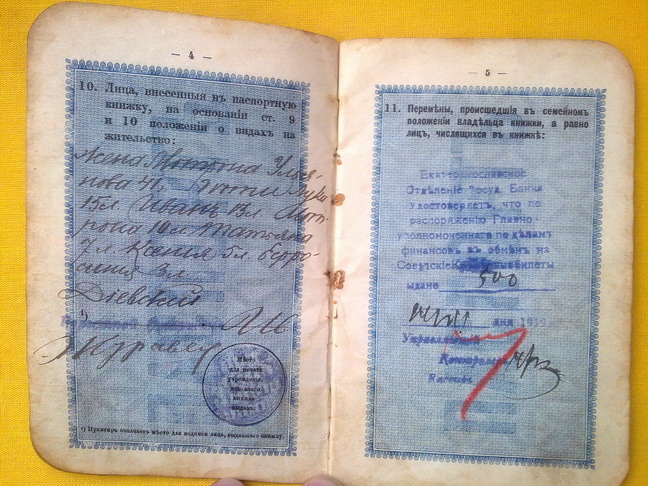 — 4 —
10. Лица, внесенныя въ паспортную
книжку, на основаніи ст. 9
и 10 положенія о видахъ на
жительство:
Жена Матрона Улья-
нова 41, дѣти Лука
15 л Иванъ 13 л Мат-
рона 10 л Татьяна
7 л Ксенія 5 л Ефро-
синія 3 л
Діевскій
¹)
Мѣсто
для печати
учрежденія,
изъ коего
книжка
выдана.
¹) Пунктиръ означаетъ мѣсто для подписи лица, выдавшаго книжку.
— 5 —
11. Перемѣны, происшедшія въ семейномъ
положеніи владѣльца книжки, а равно
лицъ, числящихся въ книжкѣ:
Екатеринославское
Отдѣленіе Народ. Банка
Удостовѣряетъ, что по
распоряженію Главно-
уполномоченнаго по дѣламъ
финансовъ въ обмѣнъ на
Совѣтскіе билеты
выдано 500
дня 1919
Управляющій
Контролеръ
Кассиръ